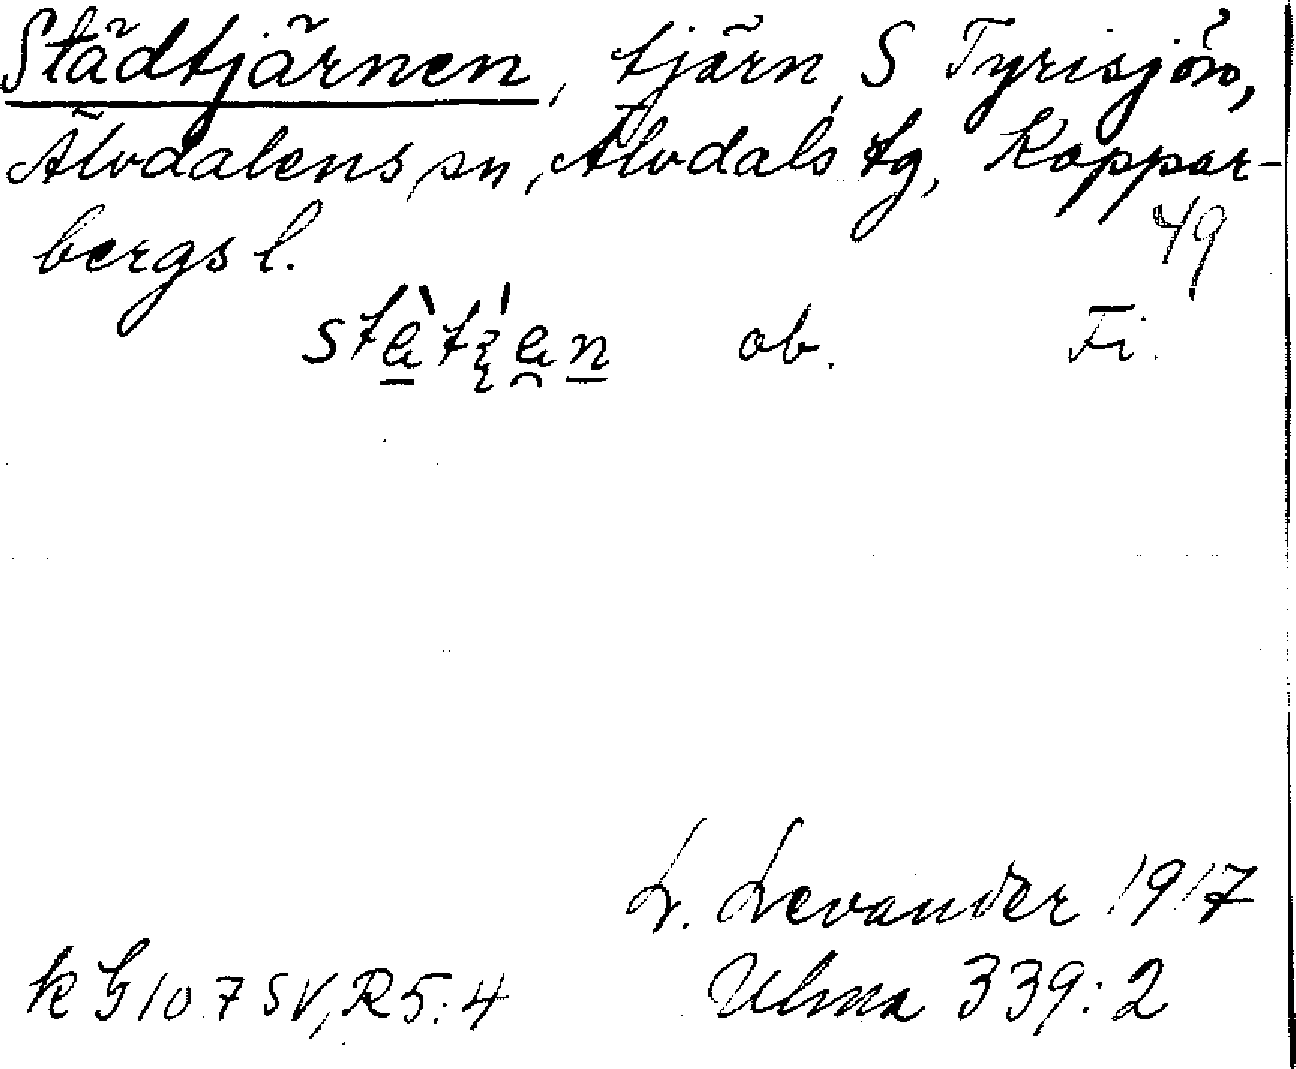 Städtjärnen, tjärn, S Tyrisjön,
Älvdalens sn, Älvdals tg, Koppar-
bergs l.
49
ob. Fi.
L. Levander 1917
k G 107 SV, R5:4 Ulma 339:2